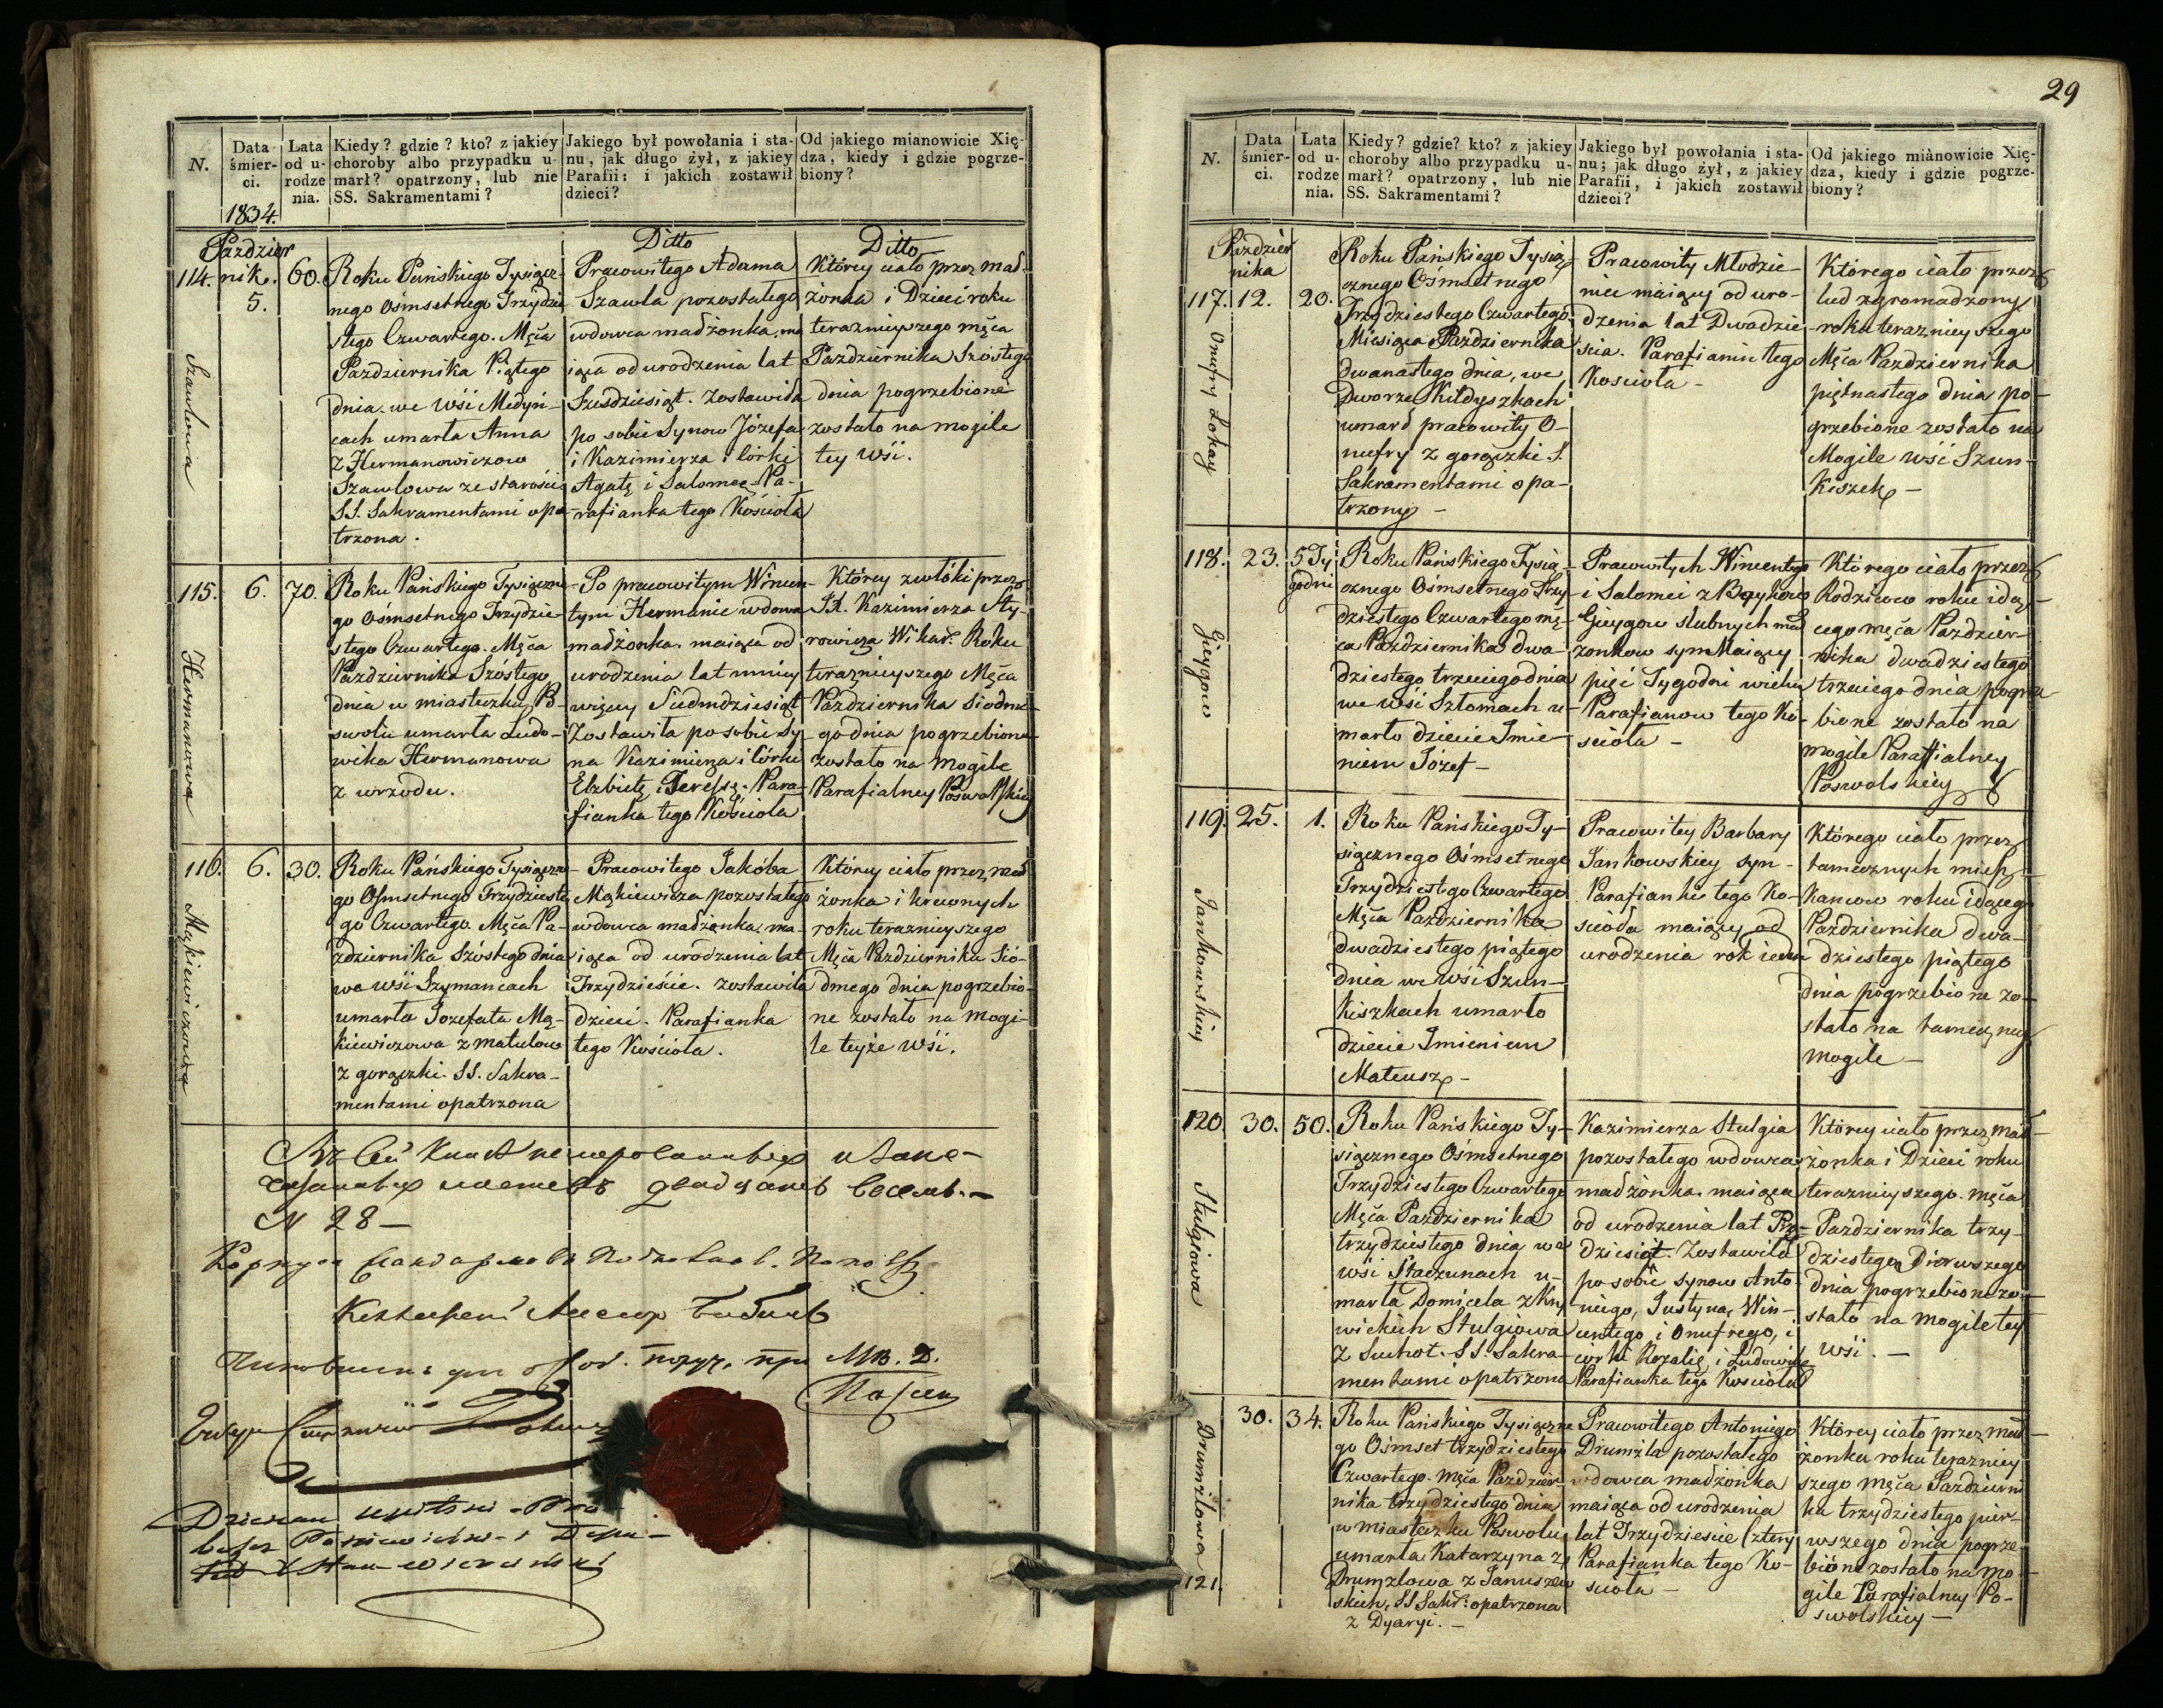 N.
Data śmier-ci.
1834.
Lata od u-rodze nia.
Kiedy? gdzie? kto? z jakiey
choroby albo przypadku u-
marł? opatrzony, lub nie
SS. Sakramentami?
Jakiego był powołania i sta-
nu, jak długo żył, z jakiey
Parafii: i jakich zostawił
dzieci?
Od jakiego mianowicie Xię-
dza, kiedy i gdzie pogrze-
biony?
Pazdzier
nik.
114.
5.
60.
Szawlowa
Roku Pańskiego Tysiącz-
nego Ośmsetnego Trzydzie
stego Czwartego. Męca
Pazdziernika Piątego
dnia. we wśi Medyń-
cach umarła Anna
z Hermanowiczow
Szawlowa ze starości
SS. Sakramentami opa-
trzona.
Ditto
Pracowitego Adama
Szawla pozostałego
wdowca małżonka, ma
iąca od urodzenia lat
Sześdziesiąt. Zostawiła
po sobie Synow Józefa
i Kazimierza i Córki
Agatę i Salomeę. Pa-
rafianka tego Kościoła
Ditto
Którey ciało przez mał-
żonka i Dzieci roku
teraznieyszego męca
Pazdziernika Szóstego
dnia pogrzebione
zostało na mogile
tey wśi.
115.
6.
70.
Hermanowa
Roku Pańskiego Tysiączne
go Ośmsetnego Trzydzie-
stego Czwartego. Męca
Pazdziernika Szóstego
dnia w miasteczku Po-
swolu umarła Ludo-
wika Hermanowa
z wrzodu.
Po pracowitym Wincen-
tym Hermanie wdowa
małżonka. maiąca od
urodzenia lat mniey
więcey Siedmdziesiąt
Zostawiła po sobie Sy-
na Kazimierza i Córki
Elzbietę i Teressę. Para-
fianka tego Kościoła
Którey zwłóki przez
JX. Kazimierza Sty-
rowicza Wikar. Roku
teraznieyszego Męca
Pazdziernika Siódme-
go dnia pogrzebione
zostało na mogile
Parafialney Poswolskiey
116.
6.
30.
Mąkiewiczowa
Roku Pańskiego Tysiączne
go Ośmsetnego Trzydzieste
go Czwartego. Męca Pa-
zdziernika Szóstego dnia
we wśi Szymancach
umarła Jozefata Mą-
kiewiczowa z Matulow
z gorączki. SS. Sakra-
mentami opatrzona
Pracowitego Jakóba
Mąkiewicza pozostałego
wdowca małżonka, ma-
iąca od urodzenia lat
Trzydzieście. zostawiła
dzieci. Parafianka
tego Kościoła.
Którey ciało przez mał
żonka i krewnych
roku teraznieyszego
Męca Pazdziernika Sió-
dmego dnia pogrzebio-
ne zostało na mogi-
le teyże wśi.
N 28 —
29
N.
Data śmier-ci.
Lata od u-rodze nia.
Kiedy? gdzie? kto? z jakiey
choroby albo przypadku u-
marł? opatrzony, lub nie
SS. Sakramentami?
Jakiego był powołania i sta-
nu; jak długo żył, z jakiey
Parafii, i jakich zostawił
dzieci?
Od jakiego miànowicie Xię-
dza, kiedy i gdzie pogrze-
biony?
Pazdzier
nika
117.
12.
20.
Onufry Lokay
Roku Pańskiego Tysią-
cznego Ośmsetnego
Trzydziestego Czwartego
Miesiąca Pazdziernika
dwanastego dnia, we
Dworze Kildyszkach
umarł pracowity O-
nufry z gorączki S.
Sakramentami opa-
trzony —
Pracowity Młodzie-
niec maiący od uro-
dzenia lat Dwadzie
scia. Parafianin tego
Koscioła —
Którego ciało przez
lud zgromadzony
roku teraznieyszego
Męca Pazdziernika
piętnastego dnia po-
grzebione zostało na
Mogile wśi Szun-
kiszek —
118.
23.
5 Ty
godni
Gieygow
Roku Pańskiego Tysią-
cznego Ośmsetnego Trzy-
dziestego Czwartego mę-
ca Pazdziernika dwa-
dziestego trzeciego dnia
we wśi Sztomach u-
marło dziecie Imie-
niem Józef —
Pracowitych Wincentego
i Salomei z
Gieygow slubnych mał
żonkow syn Maiący
pięć Tygodni wieku
Parafianow tego Ko-
scioła —
Którego ciało przez
Rodzicow roku idą-
cego męca Pazdzier-
nika dwadziestego
trzeciego dnia pogrze-
bione zostało na
mogile Parafialney
Poswolskiey
119.
25.
1.
Jankowskiey
Roku Pańskiego Ty-
siącznego Ośmsetnego
Trzydziestego Czwartego
Męca Pazdziernika
dwadziestego piątego
dnia we wśi Szun-
kiszkach umarło
dziecie Imieniem
Mateusz —
Pracowitey Barbary
Jankowskiey syn —
Parafianki tego Ko-
scioła maiący od
urodzenia rok ieden
Którego ciało przez
tamecznych miesz-
kancow roku idącego
Pazdziernika dwa-
dziestego piątego
dnia pogrzebione zo-
stało na tameczney
mogile —
120.
30.
50.
Stulgiowa
Roku Pańskiego Ty-
siącznego Ośmsetnego
Trzydziestego Czwartego
Męca Pazdziernika
trzydziestego dnia we
wśi Staczunach u-
marła Domicela z Kry
wickich Stulgiowa
z Suchot. SS. Sakra-
mentami opatrzona
Kazimierza Stulgia
pozostałego wdowca
małżonka. maiąca
od urodzenia lat Pię-
dziesiąt. Zostawiła
po sobie synow Anto-
niego, Justyna, Win-
centego i Onufrego, i
córki Rozalię, i Ludowikę
Parafianka tego Koscioła
Którey ciało przez mał-
żonka i Dzieci roku
teraznieyszego. męca
Pazdziernika trzy-
dziestego Pierwszego
dnia pogrzebione zo-
stało na mogile tey
wśi. —
121.
30.
34.
Drumzlowa
Roku Pańskiego Tysiączne
go Ośmset trzydziestego
Czwartego. męca Pazdzier-
nika trzydziestego dnia
w miasteczku Poswolu
umarła Katarzyna
Drumzlowa z Januszew
skich, SS Sakr: opatrzona
z Dyaryi. —
Pracowitego Antoniego
Drumzla pozostałego
wdowca małżonka
maiąca od urodzenia
lat Trzydziescie Cztery
Parafianka tego Ko-
scioła —
Którey ciało przez mał-
żonka roku terazniey
szego męca Pazdzierni
ka trzydziestego pier-
wszego dnia pogrze
bione zostało na mo-
gile Parafialney Po-
swolskiey —